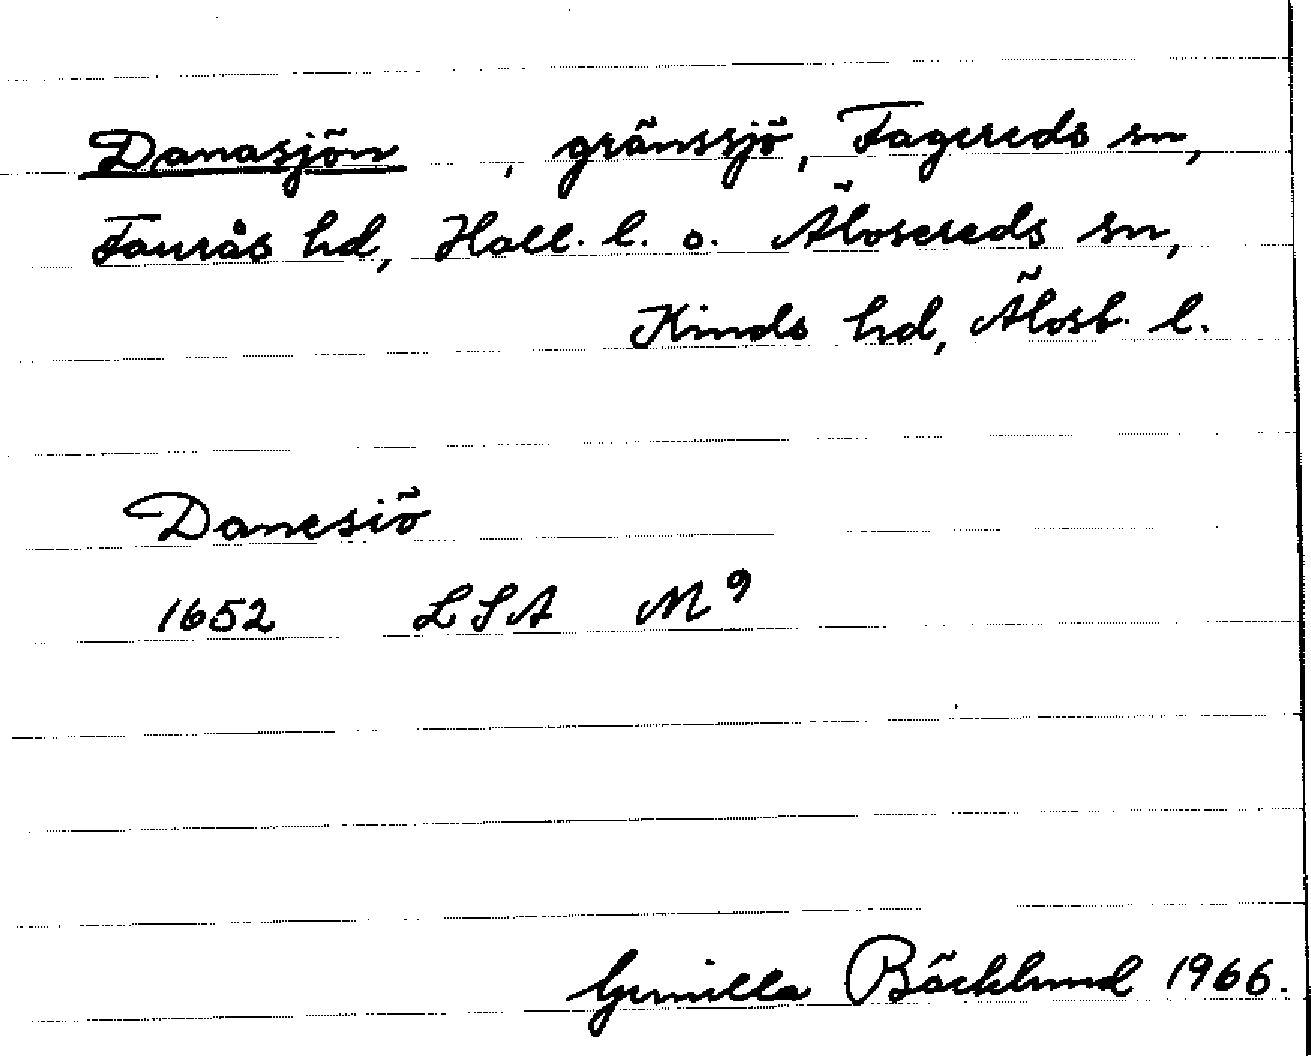 Danasjön , gränssjö, Fagereds sn,
Faurås hd, Hall. l. o. Älvsereds sn,
Kinds hd, Älvsb. l.
Danesiö
1652 LSA M⁹
Gunilla Bäcklund 1966.